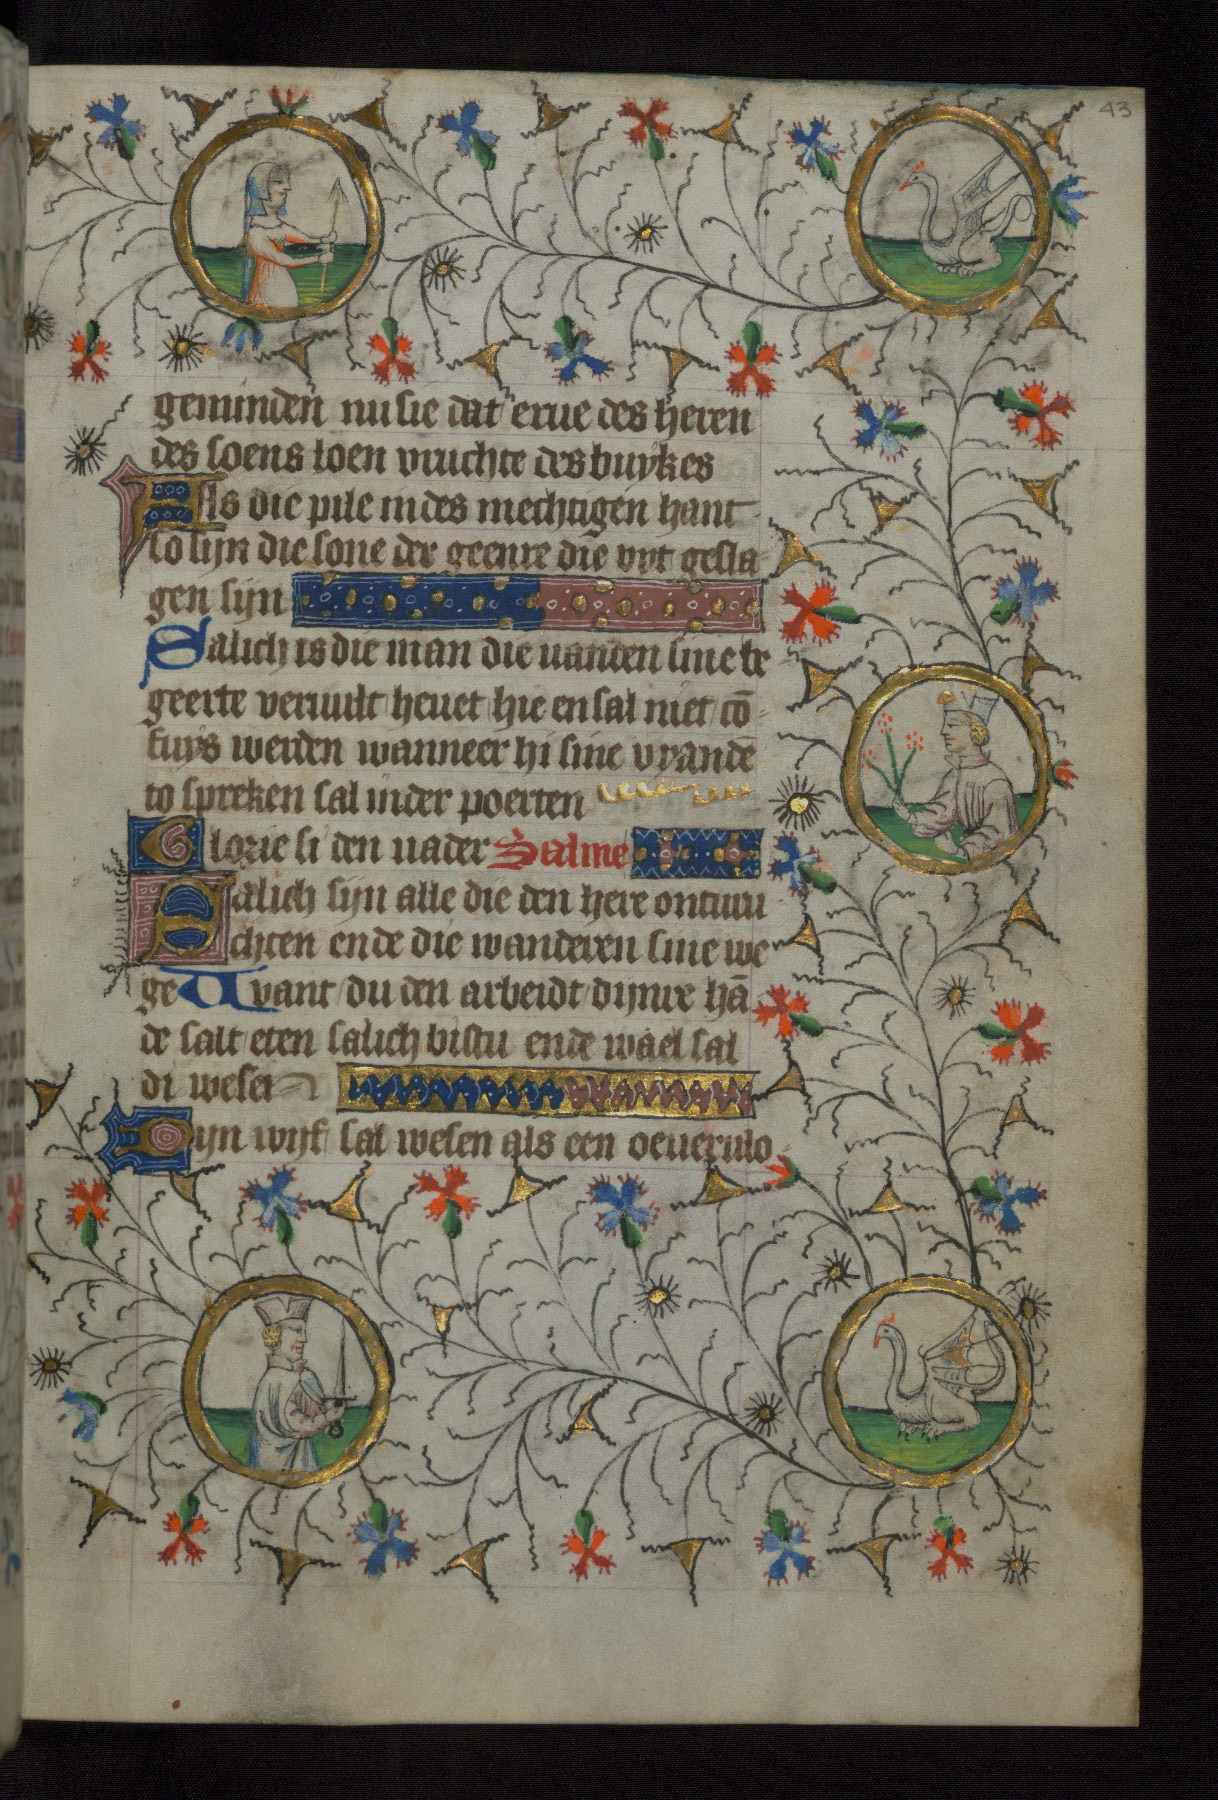 43
geminden nu sie dat erue des heren
des soens loen vruchte des buykes
Als die pile in des mechtigen hant
so sijn die sone der geenre die vyt gesla
gen sijn
Salich is die man die uanden sine be
geerte veruult heuet hie en sal niet cō
fuys werden wanneer hi sine vyandē
to spreken sal in der poerten
Glorie si den uader Salme
Salich sijn alle die den here onturu
chten ende die wanderen sine we
ge Want du den arbeidt dijnre hā
de salt eten salich bistu ende wael sal
di wesen
Dijn wijf sal wesen als een oeuerulo